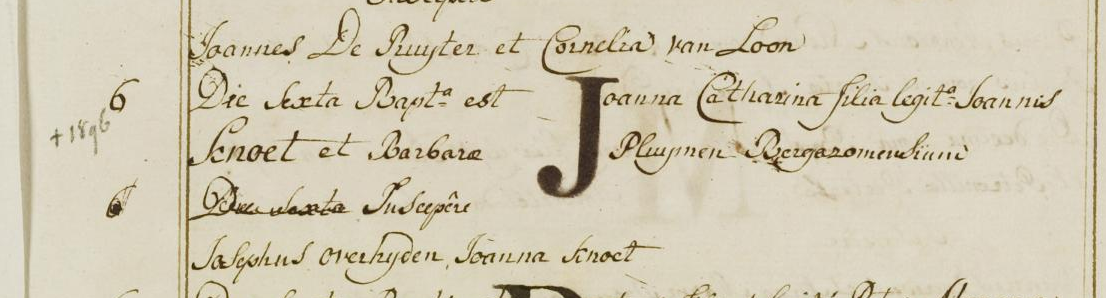 Joannes De Ruyter et Cornelia van Loon
6 Die sexta Bapt:ª est Joanna Catharina filia legit:ª Joannis
+ 1896
Knoet et Barbaræ Pluymen Bergazomensium
6 Die sexta Suscepêre
Josephus overhyden, Joanna Knoet